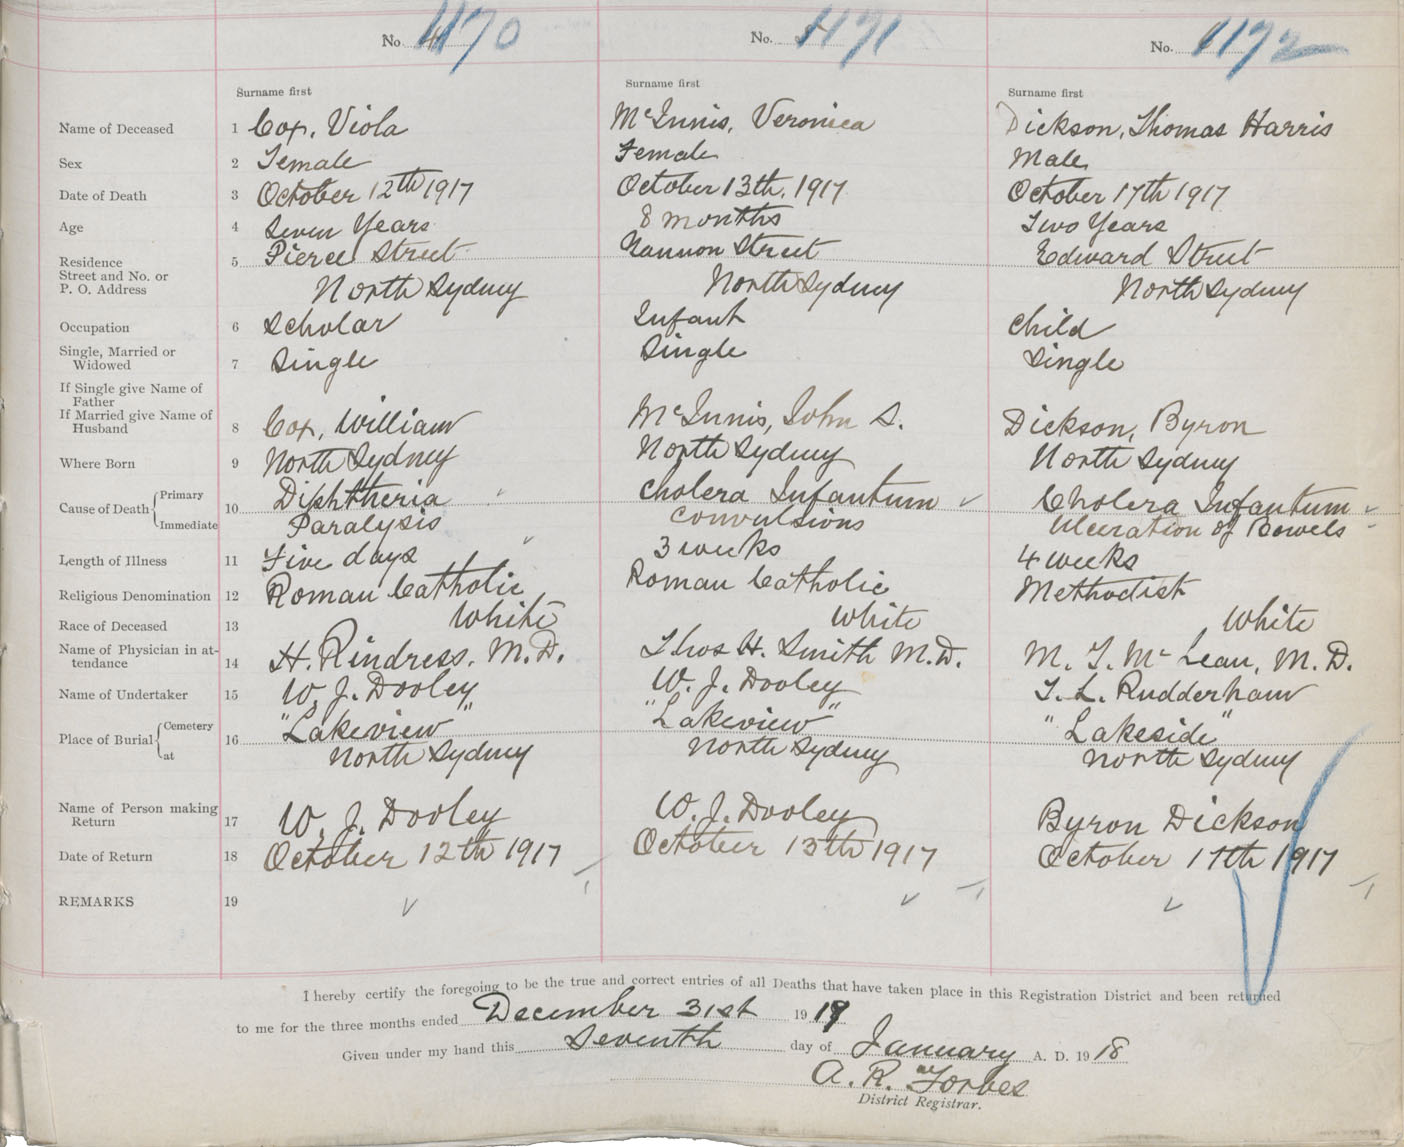 No. 1170 No. 1171 No. 1172
Surname first Surname first Surname first
Name of Deceased 1 Cox, Viola McInnis, Veronica Dickson, Thomas Harris
Sex 2 Female Female Male
Date of Death 3 October 12th 1917 October 13th, 1917 October 17th 1917
Age 4 Seven Years 8 months Two Years
Residence
Street and No. or
P. O. Address 5 Pierce Street Street Edward Street
North Sydney North Sydney North Sydney
Occupation 6 Scholar Infant Child
Single, Married or
Widowed 7 Single Single Single
If Single give Name of
Father
If Married give Name of
Husband 8 Cox, William McInnis, John S. Dickson, Byron
Where Born 9 North Sydney North Sydney North Sydney
Cause of Death Primary 10 Diphtheria Cholera Infantum Cholera Infantum
Immediate Paralysis Convulsions Ulceration of Bowels
Length of Illness 11 Five days 3 weeks 4 weeks
Religious Denomination 12 Roman Catholic Roman Catholic Methodist
Race of Deceased 13 White White White
Name of Physician in at-
tendance 14 H. Rindress, M.D. Thos H. Smith M.D. M. T. McLean, M.D.
Name of Undertaker 15 W. J. Dooley W. J. Dooley T. L. Rudderham
Place of Burial Cemetery 16 "Lakeview" "Lakeview" "Lakeside"
at North Sydney North Sydney North Sydney
Name of Person making
Return 17 W. J. Dooley W. J. Dooley Byron Dickson
Date of Return 18 October 12th 1917 October 13th 1917 October 17th 1917
REMARKS 19
I hereby certify the foregoing to be the true and correct entries of all Deaths that have taken place in this Registration District and been returned
to me for the three months ended December 31st 19
Given under my hand this Seventh day of January A. D. 1918
A. R. Forbes
District Registrar.